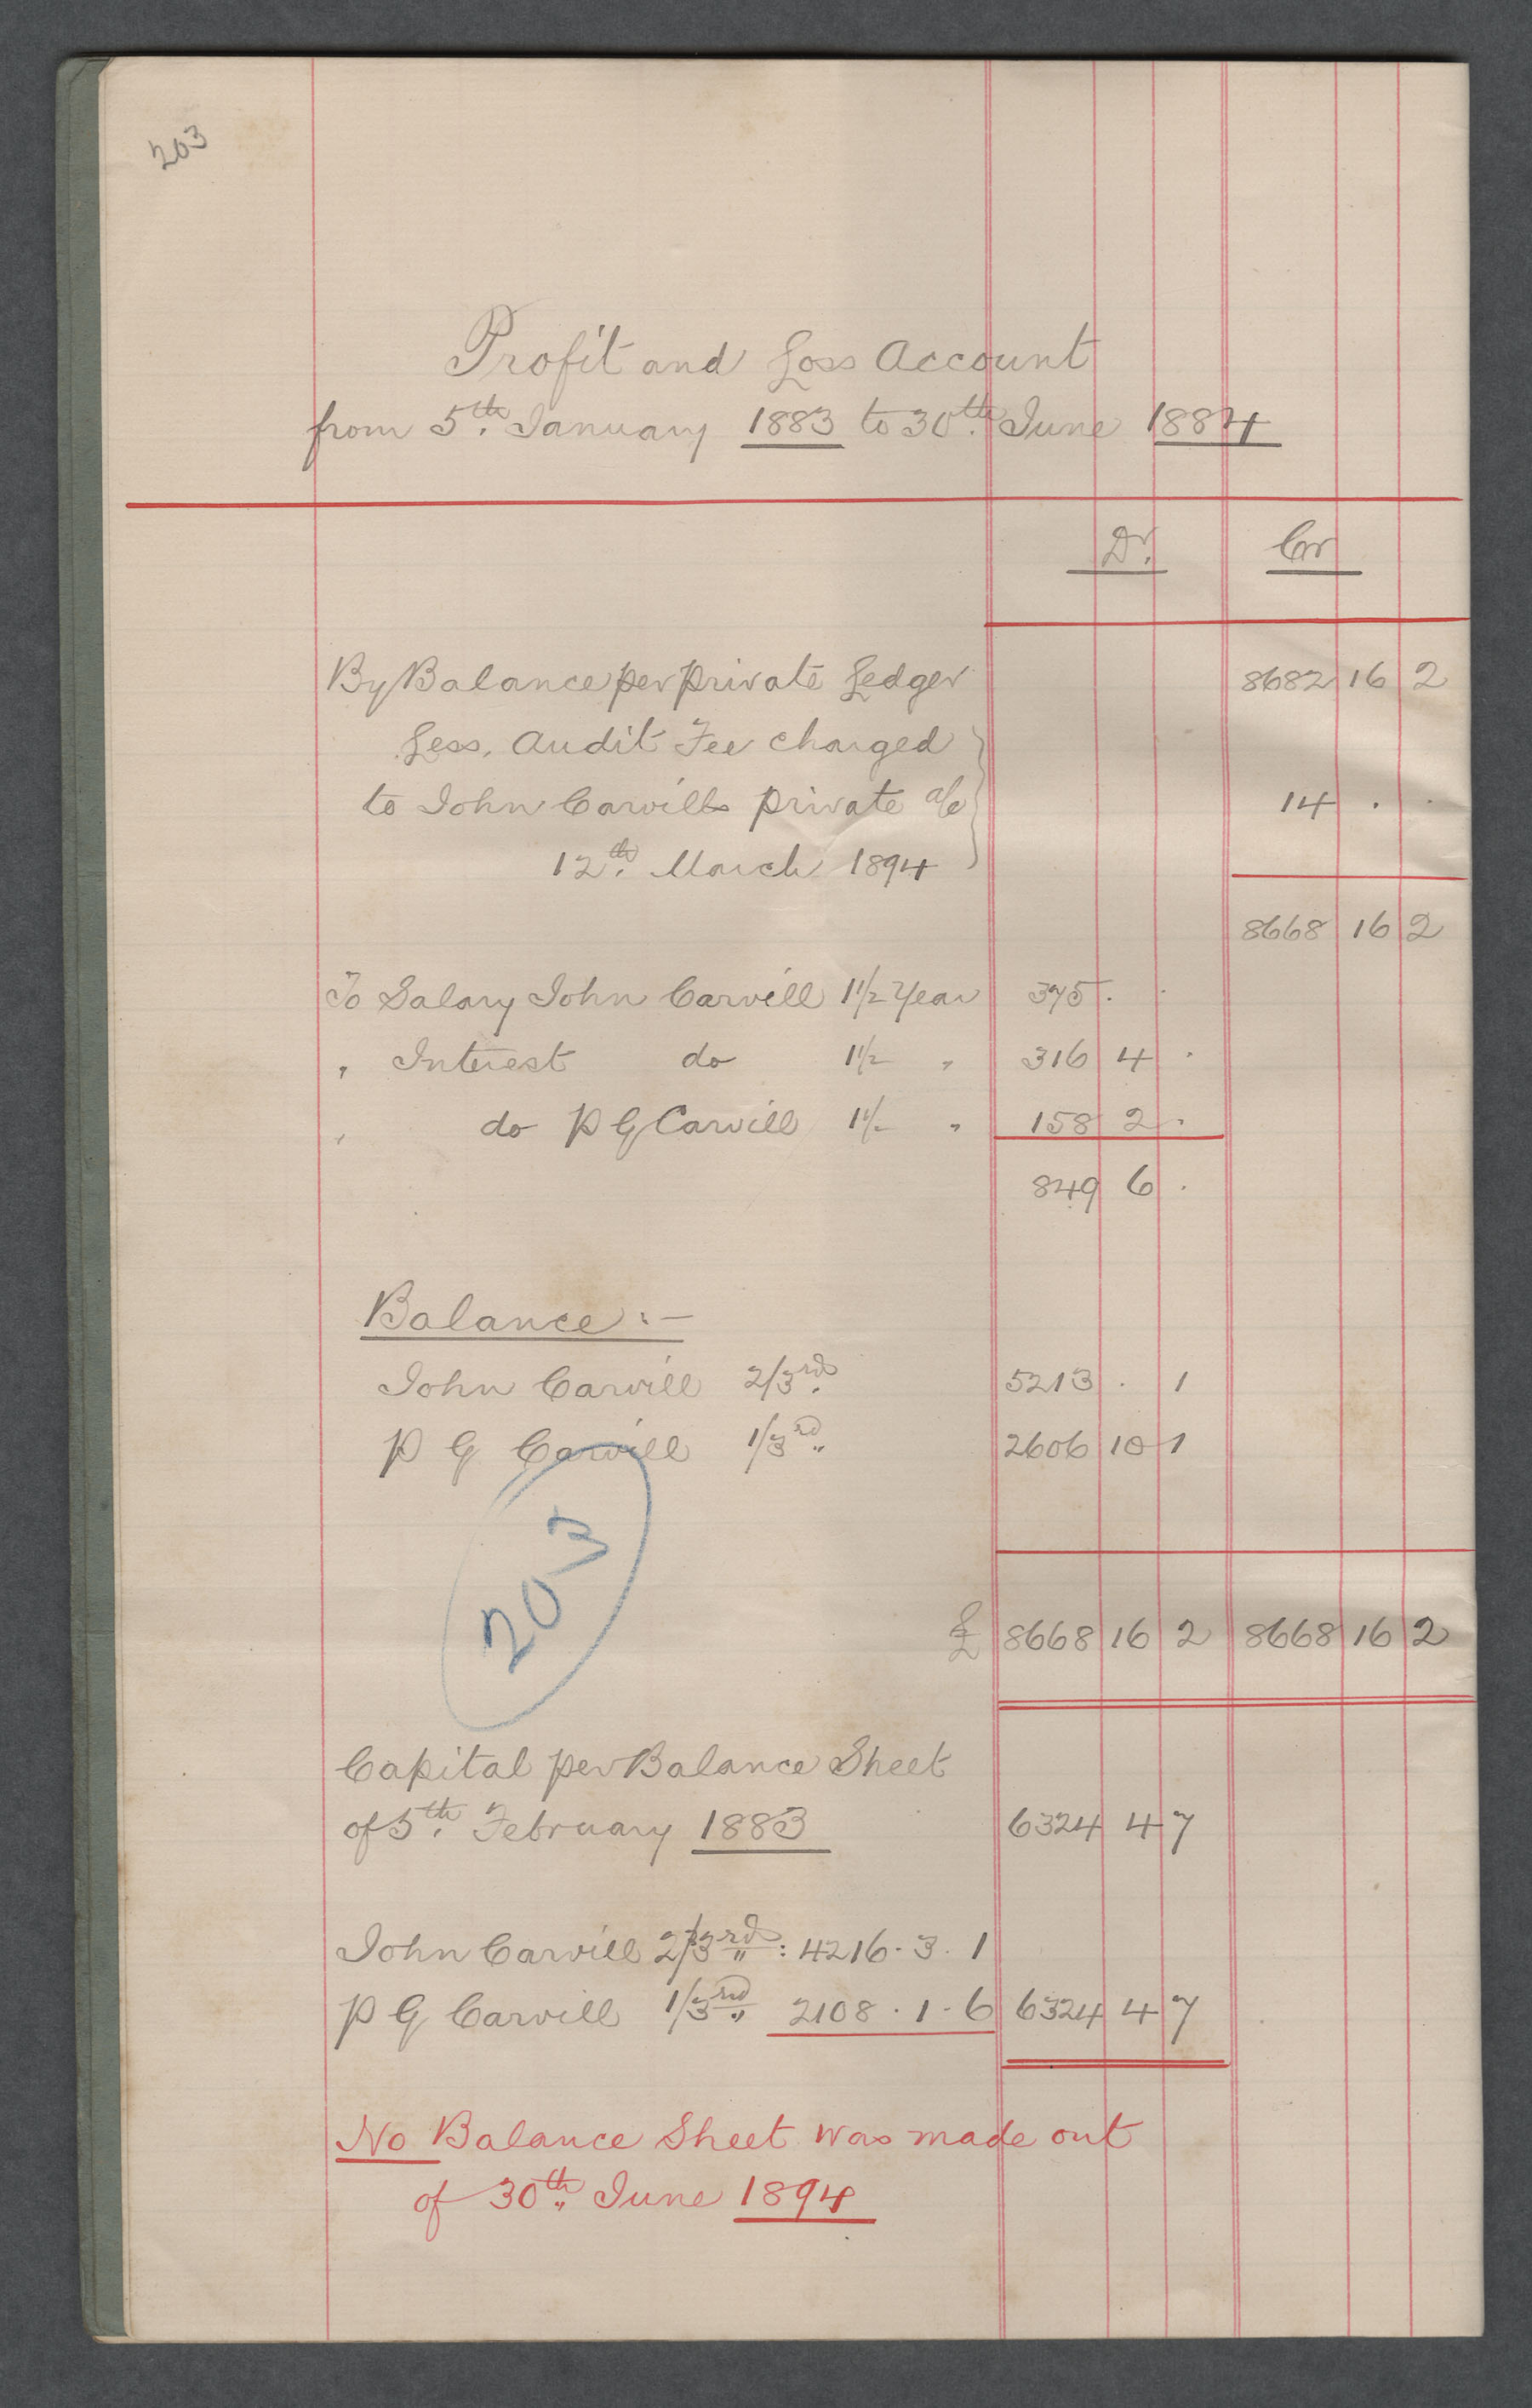 203
Profit and Loss Account
from 5th. January 1883 to 30th. June 1884
Dr. Cr
By Balance per private Ledger 8682 16 2
Less, Audit Fee charged
to John Carvills private a/c 14 . .
12th. March 1894
8668 16 2
To Salary John Carvill 1 1/2 Year 375 . .
" Interest do 1 1/2 " 316 4 .
" do P G Carvill 1 1/2 " 158 2 .
849 6 .
Balance :-
John Carvill 2/3rds. 5213 . 1
P G Carvill 1/3rd" 2606 10 1
203
£ 8668 16 2 8668 16 2
Capital per Balance Sheet
of 5th. February 1883 6324 4 7
John Carvill 2/3rds" : 4216 . 3 . 1
P G Carvill 1/3rd" 2108 . 1 - 6 6324 4 7
No Balance Sheet was made out
of 30th" June 1894